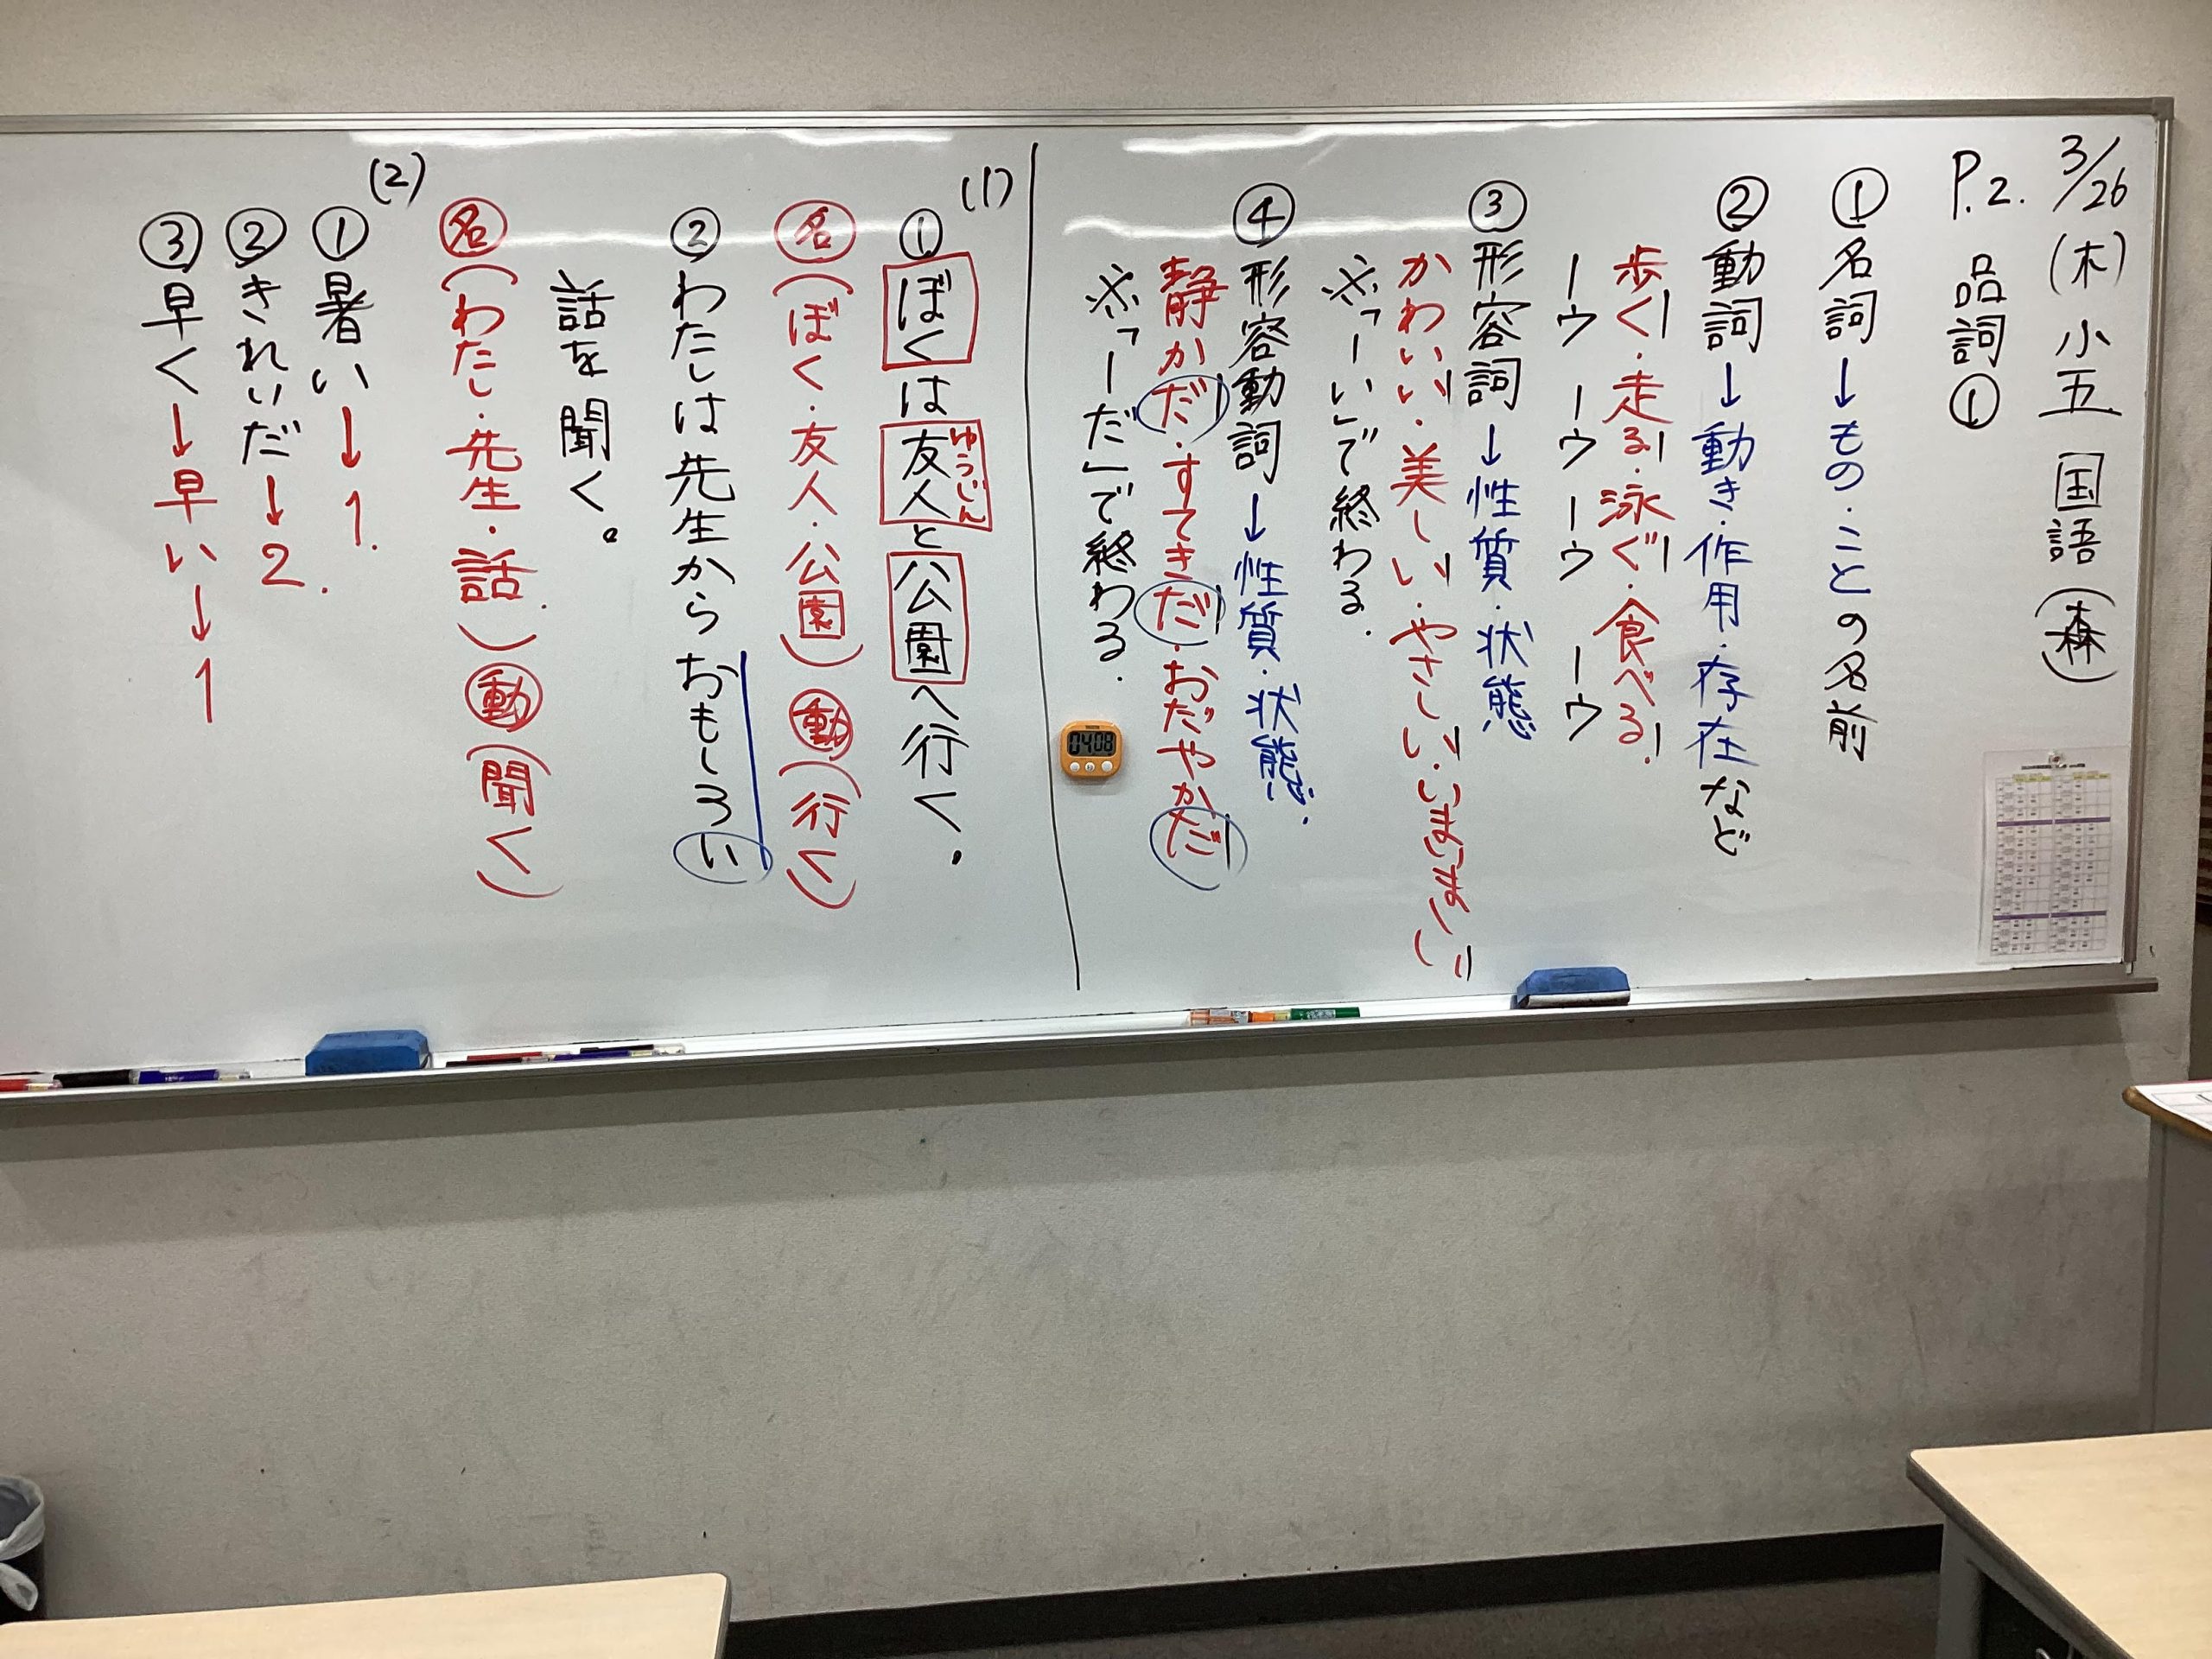 3/26(木) 小五 国語(森)
P.2. 品詞①
①名詞→もの・ことの名前
②動詞→動き・作用・存在など
歩く・走る・泳ぐ・食べる.
ーウ ーウ ーウ ーウ
③形容詞→性質・状態
かわいい・美しい・やさしい・いまいましい
※「ーい」で終わる.
④形容動詞→性質・状態.
静かだ・すてきだ・おだやかだ
※「ーだ」で終わる.
(1)
①ぼくは友人と公園へ行く.
ゆうじん
名(ぼく・友人・公園) 動(行く)
②わたしは先生からおもしろい
話を聞く。
名(わたし・先生・話.) 動(聞く)
(2)
①暑い→1.
②きれいだ→2.
③早く→早い→1
04:08